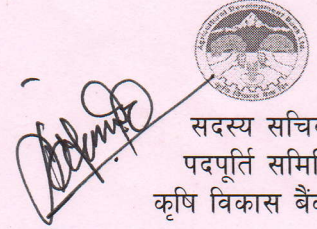 Agricultural Development Bank Ltd.
सदस्य सचिव
पदपूर्ति समिति
कृषि विकास बैंक